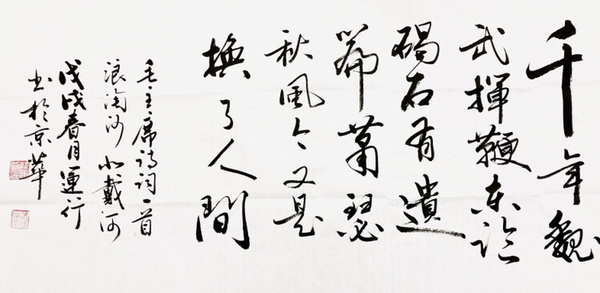 千年魏
武揮鞭東臨
碣石有遺
篇蕭瑟
秋風今又是
換了人間
毛主席詩詞一首
浪淘沙北戴河
戊戌春月連行
书於京華